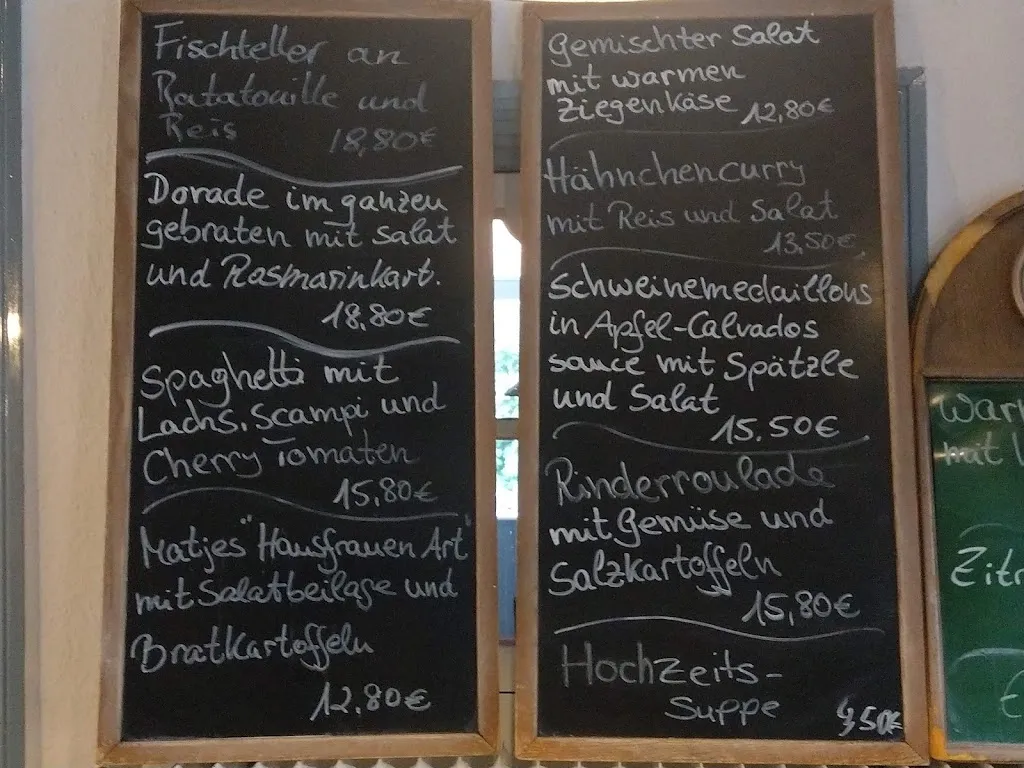 Fischteller an
Ratatouille und
Reis 18,80€
Dorade im ganzen
gebraten mit Salat
und Rosmarinkart.
18,80€
Spaghetti mit
Lachs, Scampi und
Cherry Tomaten
15,80€
Matjes "Hausfrauen Art"
mit Salatbeilage und
Bratkartoffeln
12,80€
Gemischter Salat
mit warmen
Ziegenkäse 12,80€
Hähnchencurry
mit Reis und Salat
13,50€
Schweinemedaillons
in Apfel-Calvados
sauce mit Spätzle
und Salat
15.50€
Rinderroulade
mit Gemüse und
Salzkartoffeln
15,80€
Hochzeits-
Suppe
€
War
mit
Zitr